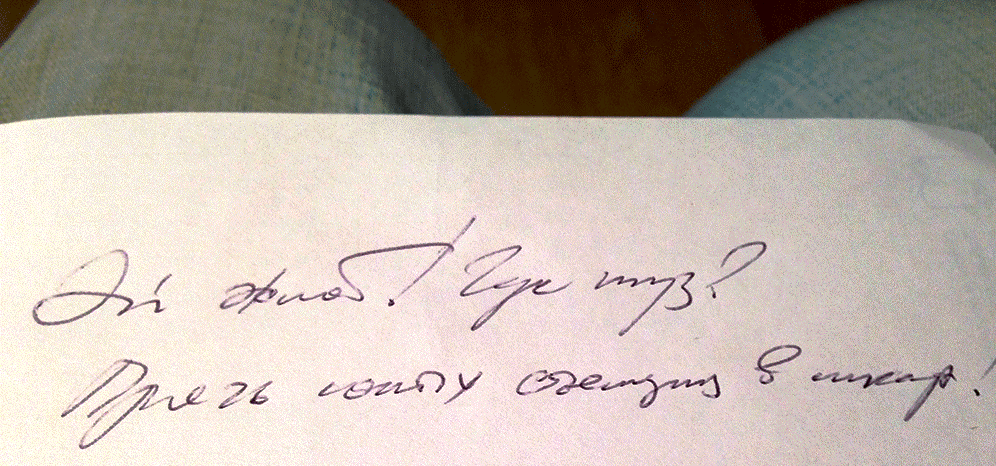 Эй жлоб! Где туз?
Прячь юных съемщиц в шкаф!